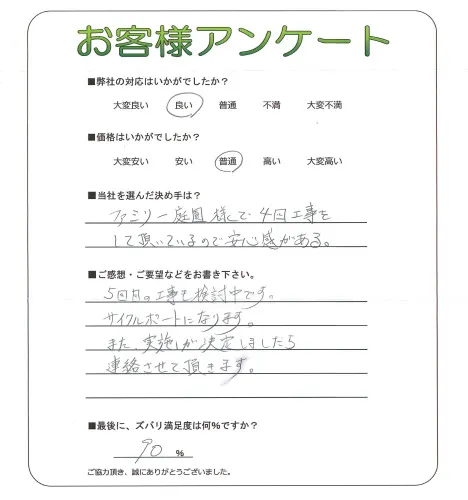 お客様アンケート
■弊社の対応はいかがでしたか？
大変良い 良い 普通 不満 大変不満
■価格はいかがでしたか？
大変安い 安い 普通 高い 大変高い
■当社を選んだ決め手は？
ファミリー庭園様で4回工事を
して頂いているので安心感がある。
■ご感想・ご要望などをお書き下さい。
5回目の工事を検討中です。
サイクルポートになります。
また、実施が決定しましたら
連絡させて頂きます。
■最後に、ズバリ満足度は何%ですか？
90 %
ご協力頂き、誠にありがとうございました。